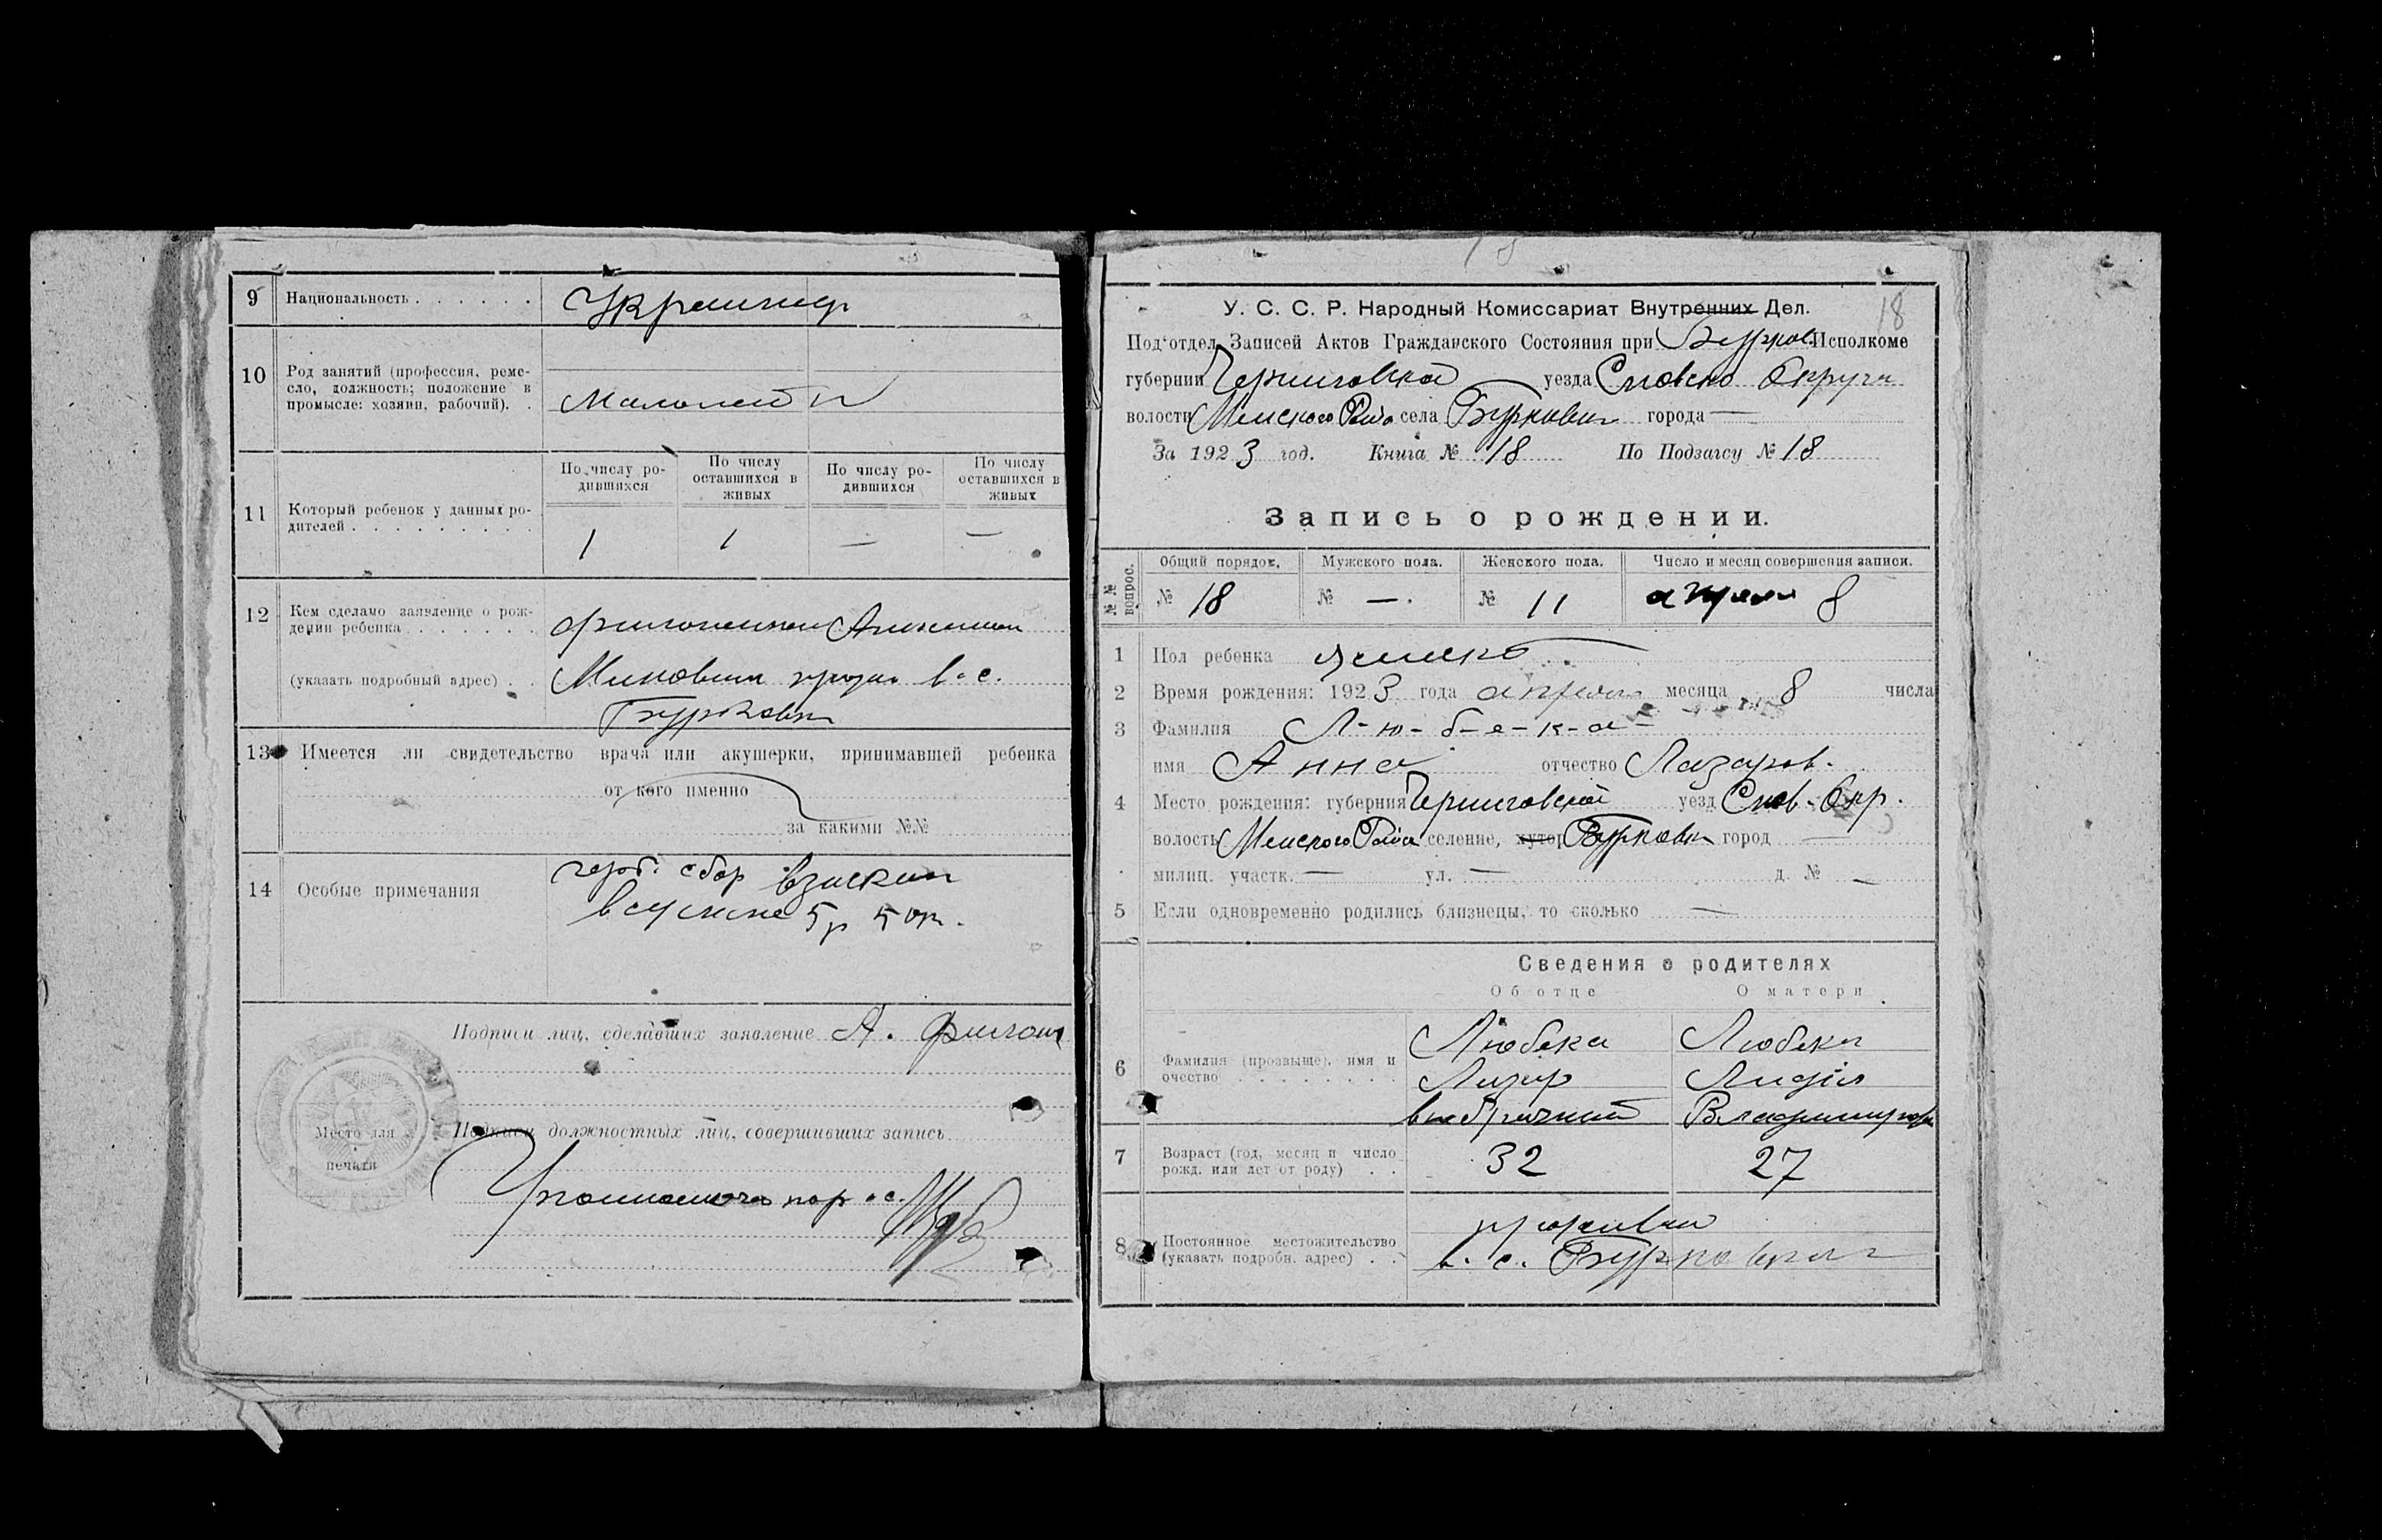 9 Национальность
10 Род занятий (профессия, реме-
сло, должность; положение в
промысле: хозяин, рабочий).
11 Который ребенок у данных ро-
дителей
По числу ро-
дившихся
По числу
оставшихся в
живых
По числу ро-
дившихся
По числу
оставшихся в
живых
1 1 — —
12 Кем сделано заявление о рож-
дении ребенка
(указать подробный адрес) в. с.
Бурковки
13 Имеется ли свидетельство врача или акушерки, принимавшей ребенка
от кого именно
за какими №№
14 Особые примечания
герб. сбор взыскан
5р 50к.
Подписи лиц, сделавших заявление А.
Подписи должностных лиц, совершивших запись
Место для
печати
18
У. С. С. Р. Народный Комиссариат Внутренних Дел.
Под‘отдел Записей Актов Гражданского Состояния при Исполкоме
губернии Черниговской уезда Сновско Округа
волости Менского села Бурковки города —
За 1923 год. Книга № 18 По Подзагсу № 18
Запись о рождении.
№№ вопрос.
Общий порядок. Мужского пола. Женского пола. Число и месяц совершения записи.
№ 18 № — № 11 апреля 8
1 Пол ребенка женско
2 Время рождения: 1923 года апреля месяца 8 числа
3 Фамилия Л-ю-б-е-к-а-
имя Анна отчество Лазаров.
4 Место рождения: губерния Черниговской уезд Снов. Окр.
волость Менского селение, хутор Бурковки город —
милиц. участк. — ул. — д. № —
5 Если одновременно родились близнецы, то сколько —
Сведения о родителях
Об отце О матери
6 Фамилия (прозвыще), имя и
очество
Любека Любека
Лазар Лидия
внебрачный Владимиров
7 Возраст (год, месяц и число
рожд. или лет от роду)
32 27
8 Постоянное местожительство
(указать подробн. адрес)
в. с. Бурковках